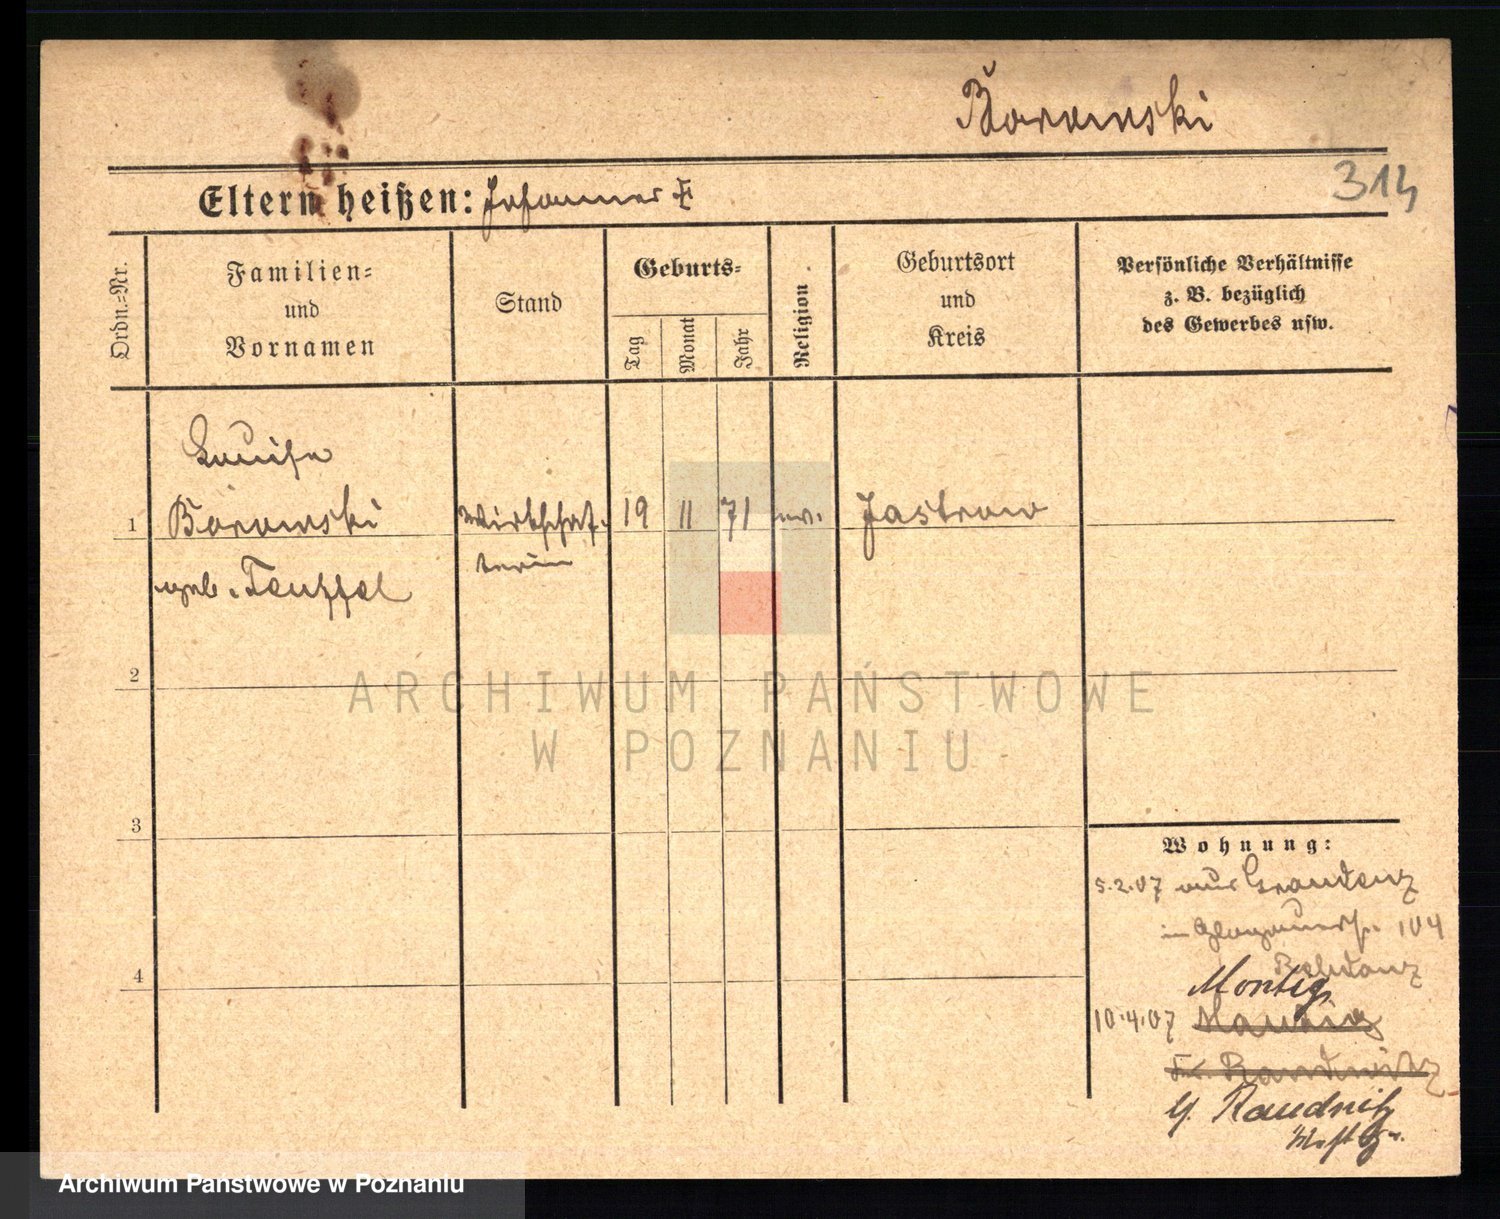 Borowski
314
Eltern heißen: Johannes
Ordn.-Nr.
Familien-
und
Vornamen
Stand
Geburts-
Tag
Monat
Jahr
Religion
Geburtsort
und
Kreis
Persönliche Verhältnisse
z. B. bezüglich
des Gewerbes usw.
Louise
1 Borowski Wirtschaf- 19 11 71 ev. Jastrow
terin
geb. Teuffel
2
ARCHIWUM PAŃSTWOWE
W POZNANIU
3
Wohnung:
5.2.07 aus Graudenz
in Glogauerstr. 104
4
Montig
10.4.07
Kr. Raudnitz
G. Raudnitz
Archiwum Państwowe w Poznaniu